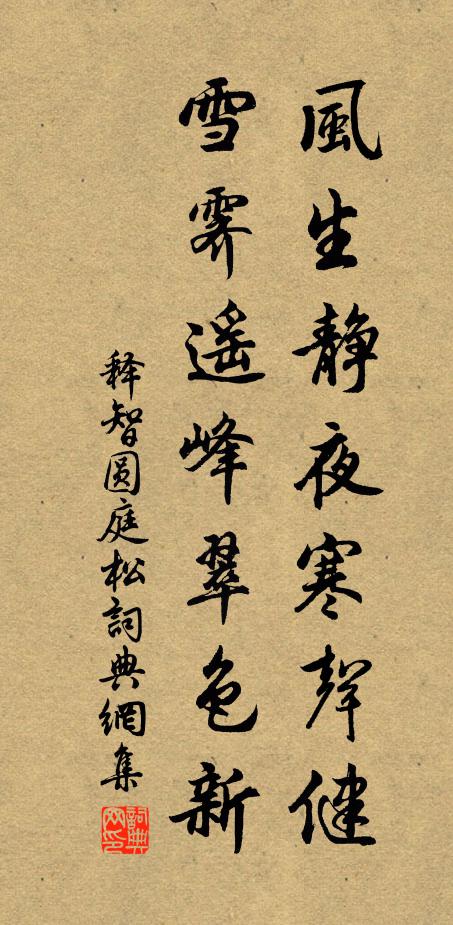 風生靜夜寒聲健
雪霽遥峰翠色新
释智圆庭松詞典網集
詞典网印